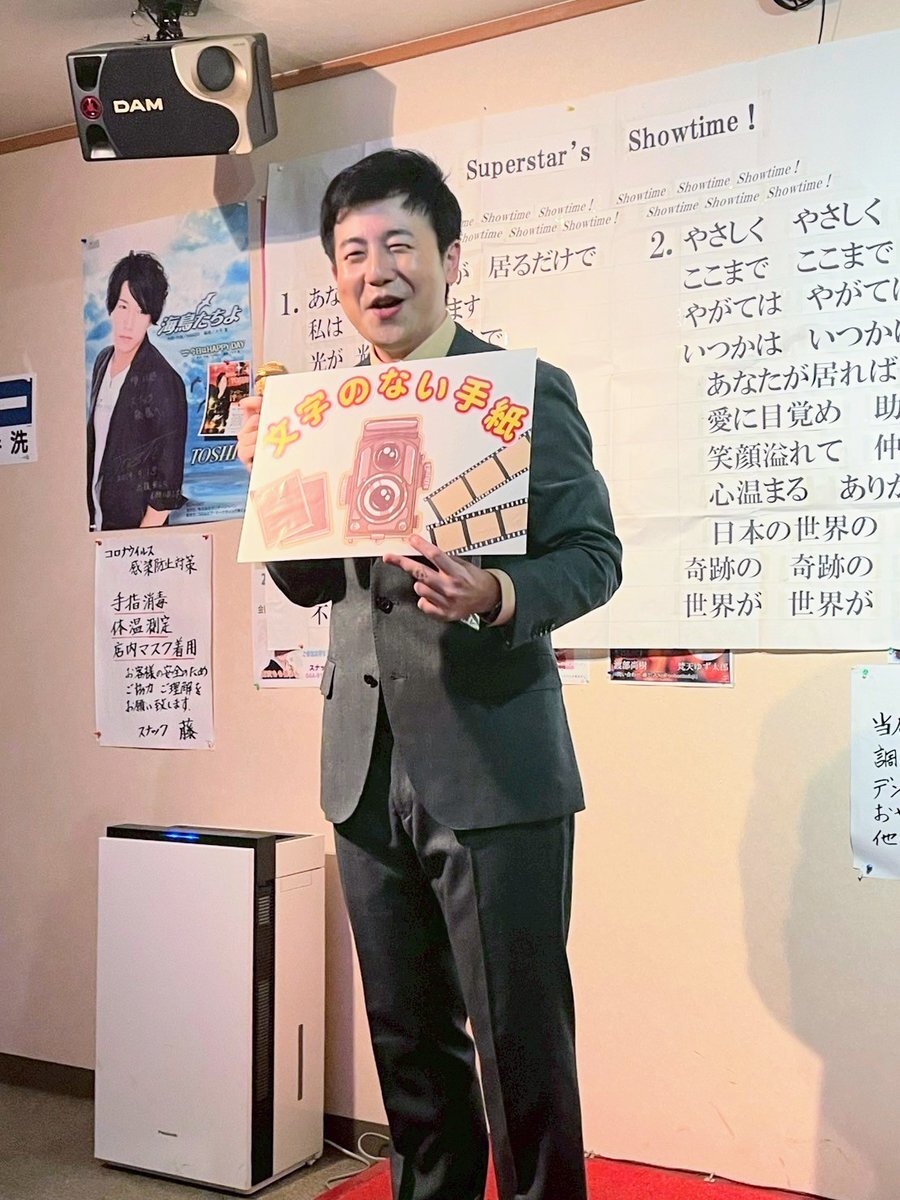 DAM
Superstar's Showtime!
Showtime Showtime Showtime!
Showtime Showtime Showtime!
Showtime Showtime Showtime!
Showtime Showtime Showtime!
1. あな
が 居るだけで
私は
ます
光が
で
2. やさしく やさしく
ここまで ここまで
やがては やがては
いつかは いつかは
あなたが居れば
愛に目覚め 助
笑顔溢れて 仲
心温まる ありが
日本の世界の
奇跡の 奇跡の
世界が 世界が
海鳥たちよ
今日はHAPPY DAY
TOSHI
洗
文字のない手紙
コロナウイルス
感染防止対策
手指消毒
体温測定
店内マスク着用
お客様の安全のため
ご協力 ご理解を
お願い致します
スナック 藤
不
渡部尚樹
梵天ゆず太郎
当店
調
デン
おや
他